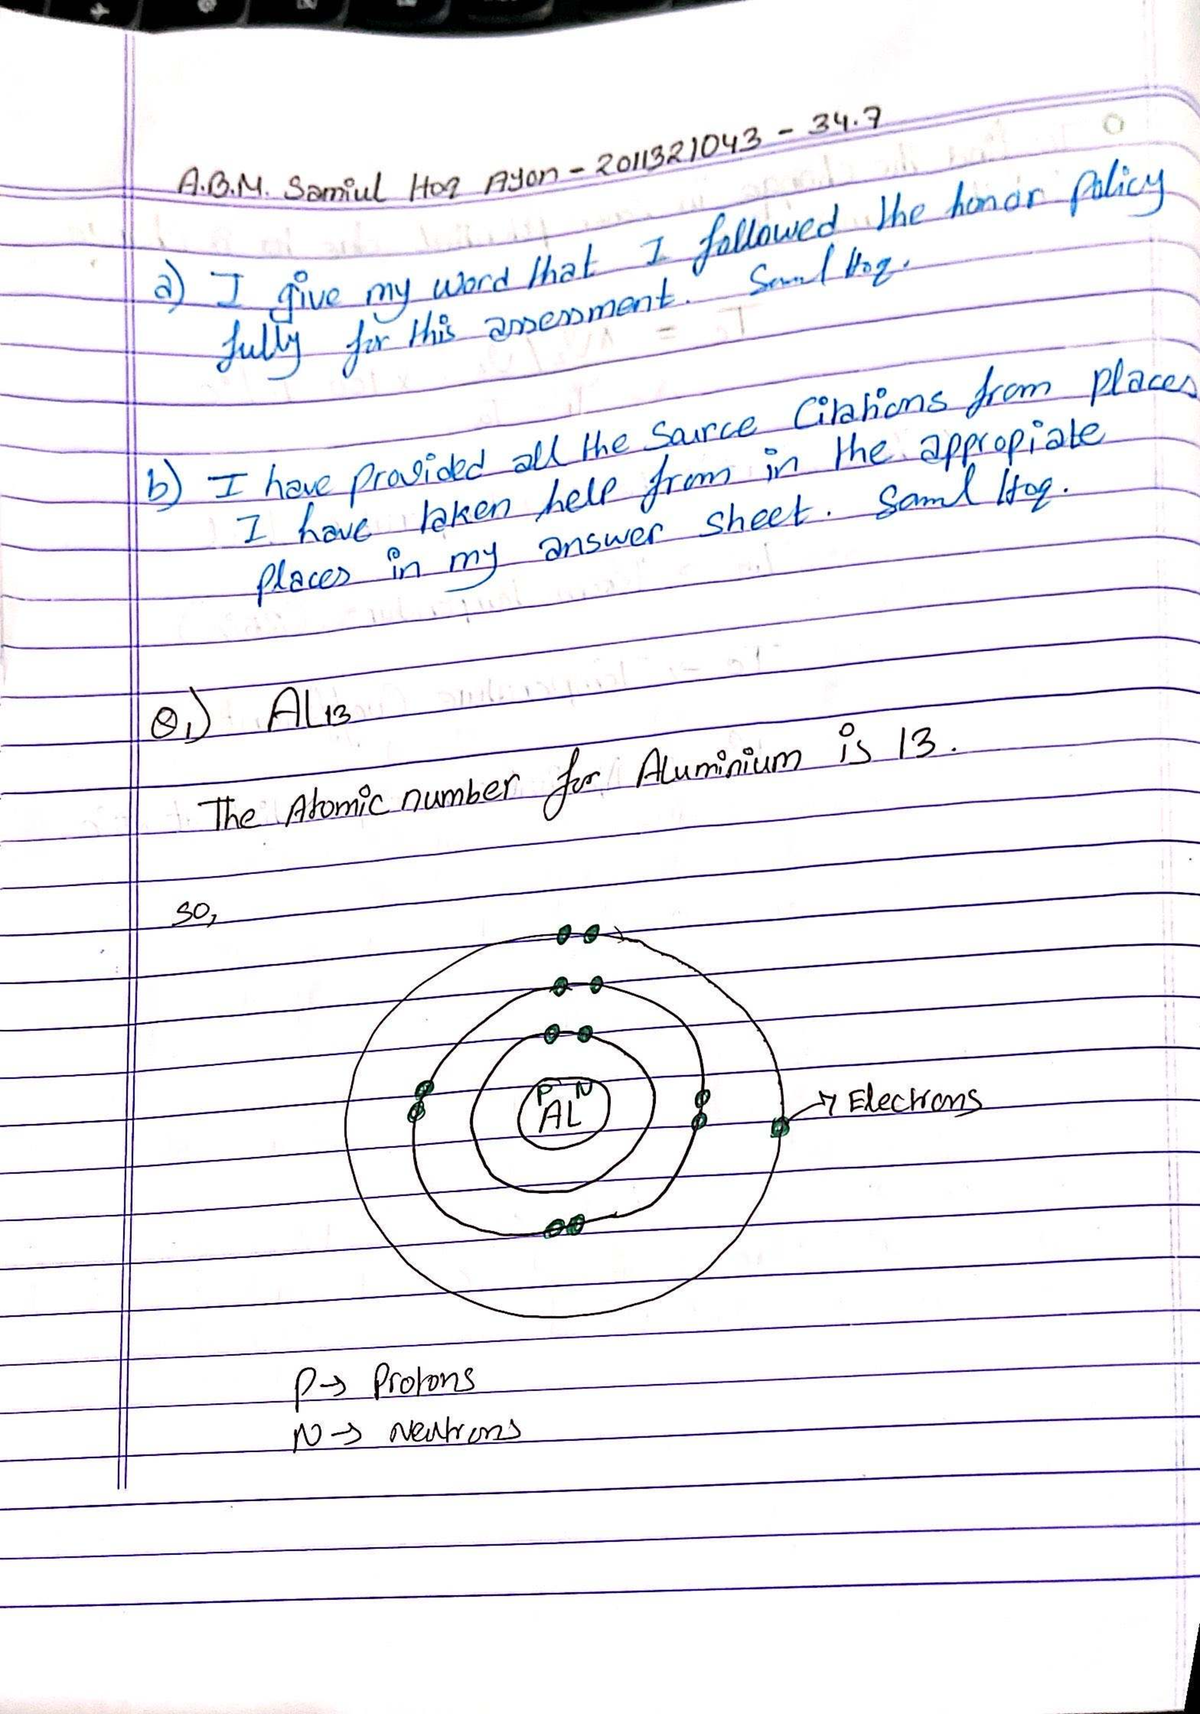 A.B.M. Samiul Hoq Ayon - 2011321043 - 34.7
a) I give my word that I followed the honor policy
fully for this assessment. Samul Hoq.
b) I have provided all the source citations from places
I have taken help from in the appropiate
places in my answer sheet. Samul Hoq.
Q1) AL13
The Atomic number for Aluminium is 13.
so,
P N
AL
→ Electrons
P → Protons
N → Neutrons